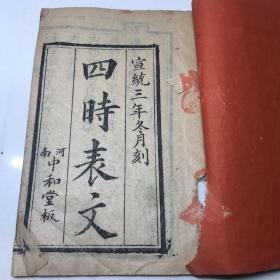 宣統三年冬月刻
四時表文
河南中和堂板